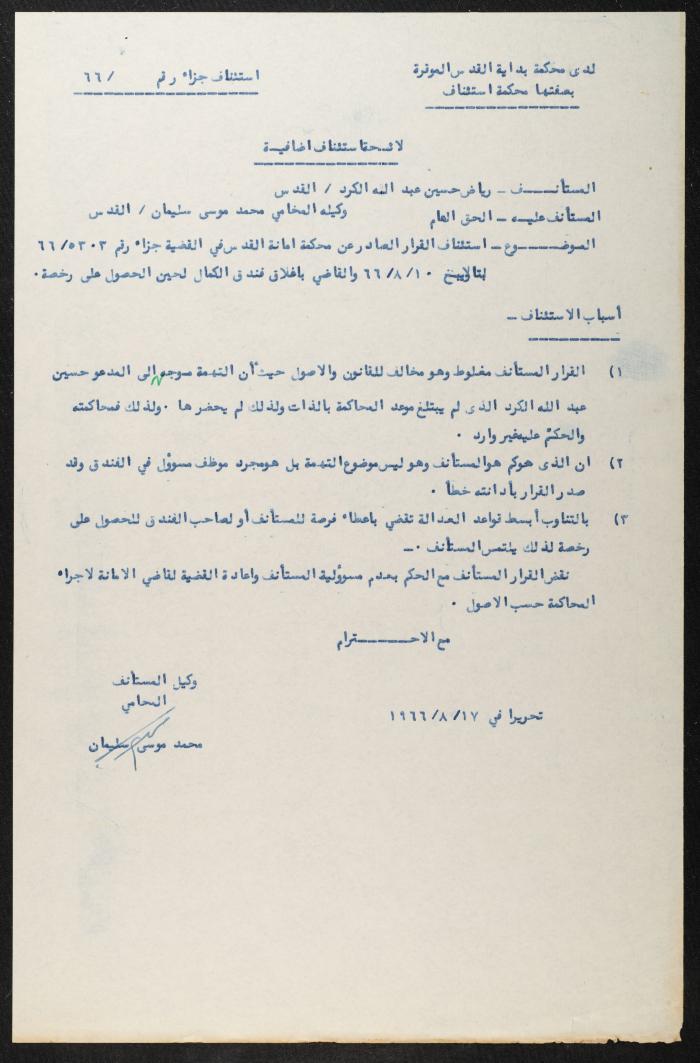 لدى محكمة بداية القدس الموقرة
بصفتها محكمة استئناف
استئناف جزاء رقم / ٦٦
لائحة استئناف اضافية
المستأنـــف ــ رياض حسين عبد الله الكرد / القدس
وكيله المحامي محمد موسى سليمان / القدس
المستأنف عليــه ــ الحق العام
الموضــــوع ــ استئناف القرار الصادر عن محكمة امانة القدس في القضية جزاء رقم ٦٦/٥٣٠٣
بتاريخ ٦٦/٨/١٠ والقاضي باغلاق فندق الكمال لحين الحصول على رخصة .
أسباب الاستئناف ــ
١) القرار المستأنف مغلوط وهو مخالف للقانون والاصول حيث أن التهمة موجهه الى المدعو حسين
عبد الله الكرد الذى لم يبتلغ موعد المحاكمة بالذات ولذلك لم يحضرها . ولذلك فمحاكمته
والحكم عليه غير وارد .
٢) ان الذى هوكم هو المستأنف وهو ليس موضوع التهمة بل هو مجرد موظف مسوؤل في الفندق وقد
صدر القرار بأدانته خطأ .
٣) بالتناوب أبسط قواعد العدالة تقضي باعطاء فرصة للمستأنف أو لصاحب الفندق للحصول على
رخصة لذلك يلتمس المستأنف . ــ
نقض القرار المستأنف مع الحكم بعدم مسوؤلية المستأنف واعادة القضية لقاضي الامانة لاجراء
المحاكمة حسب الاصول .
مع الاحـــــترام
وكيل المستأنف
المحامي
تحريرا في ١٩٦٦/٨/١٧
محمد موسى سليمان